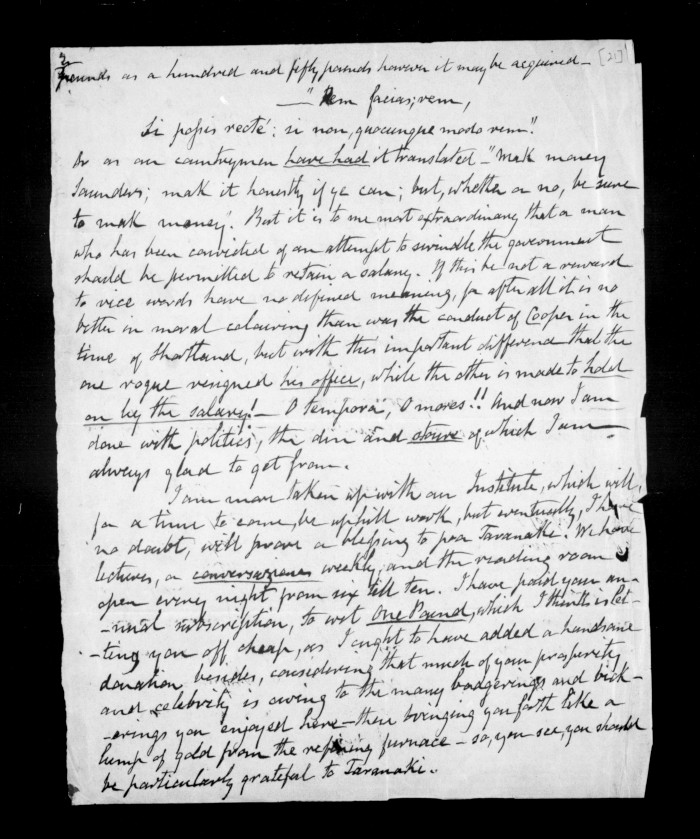 2
pounds as a hundred and fifty pounds however it may be acquired – [21]
— "Rem facias; rem,
Si possis recté; si non, quocunque modo rem".
Or as our countrymen have had it translated – "Mak money
Saunders; mak it honestly if ye can; but, whether or no, be sure
to mak money". But it is to me most extraordinary that a man
who has been convicted of an attempt to swindle the government
should be permitted to retain a salary. If this be not a reward
to vice words have no defined meaning, for after all it is no
better in moral colouring than was the conduct of Cooper in the
time of Shortland, but with this important difference that the
one rogue resigned his office, while the other is made to hold
on by the salary! – O tempora, O mores!! And now I am
done with politics, the din and stour of which I am
always glad to get from.
I am more taken up with our Institute, which will,
for a time to come, be uphill work, but eventually, I have
no doubt, will prove a blessing to poor Taranaki. We have
lectures, or conversaziones weekly, and the reading room
open every night from six till ten. I have paid your an-
-nual subscription, to wit One Pound, which I think is let-
-ting you off cheap, as I ought to have added a handsome
donation besides, considering that much of your prosperity
and celebrity is owing to the many badgerings and bick-
-erings you enjoyed here – then bringing you forth like a
lump of gold from the refining furnace – so, you see, you should
be particularly grateful to Taranaki.